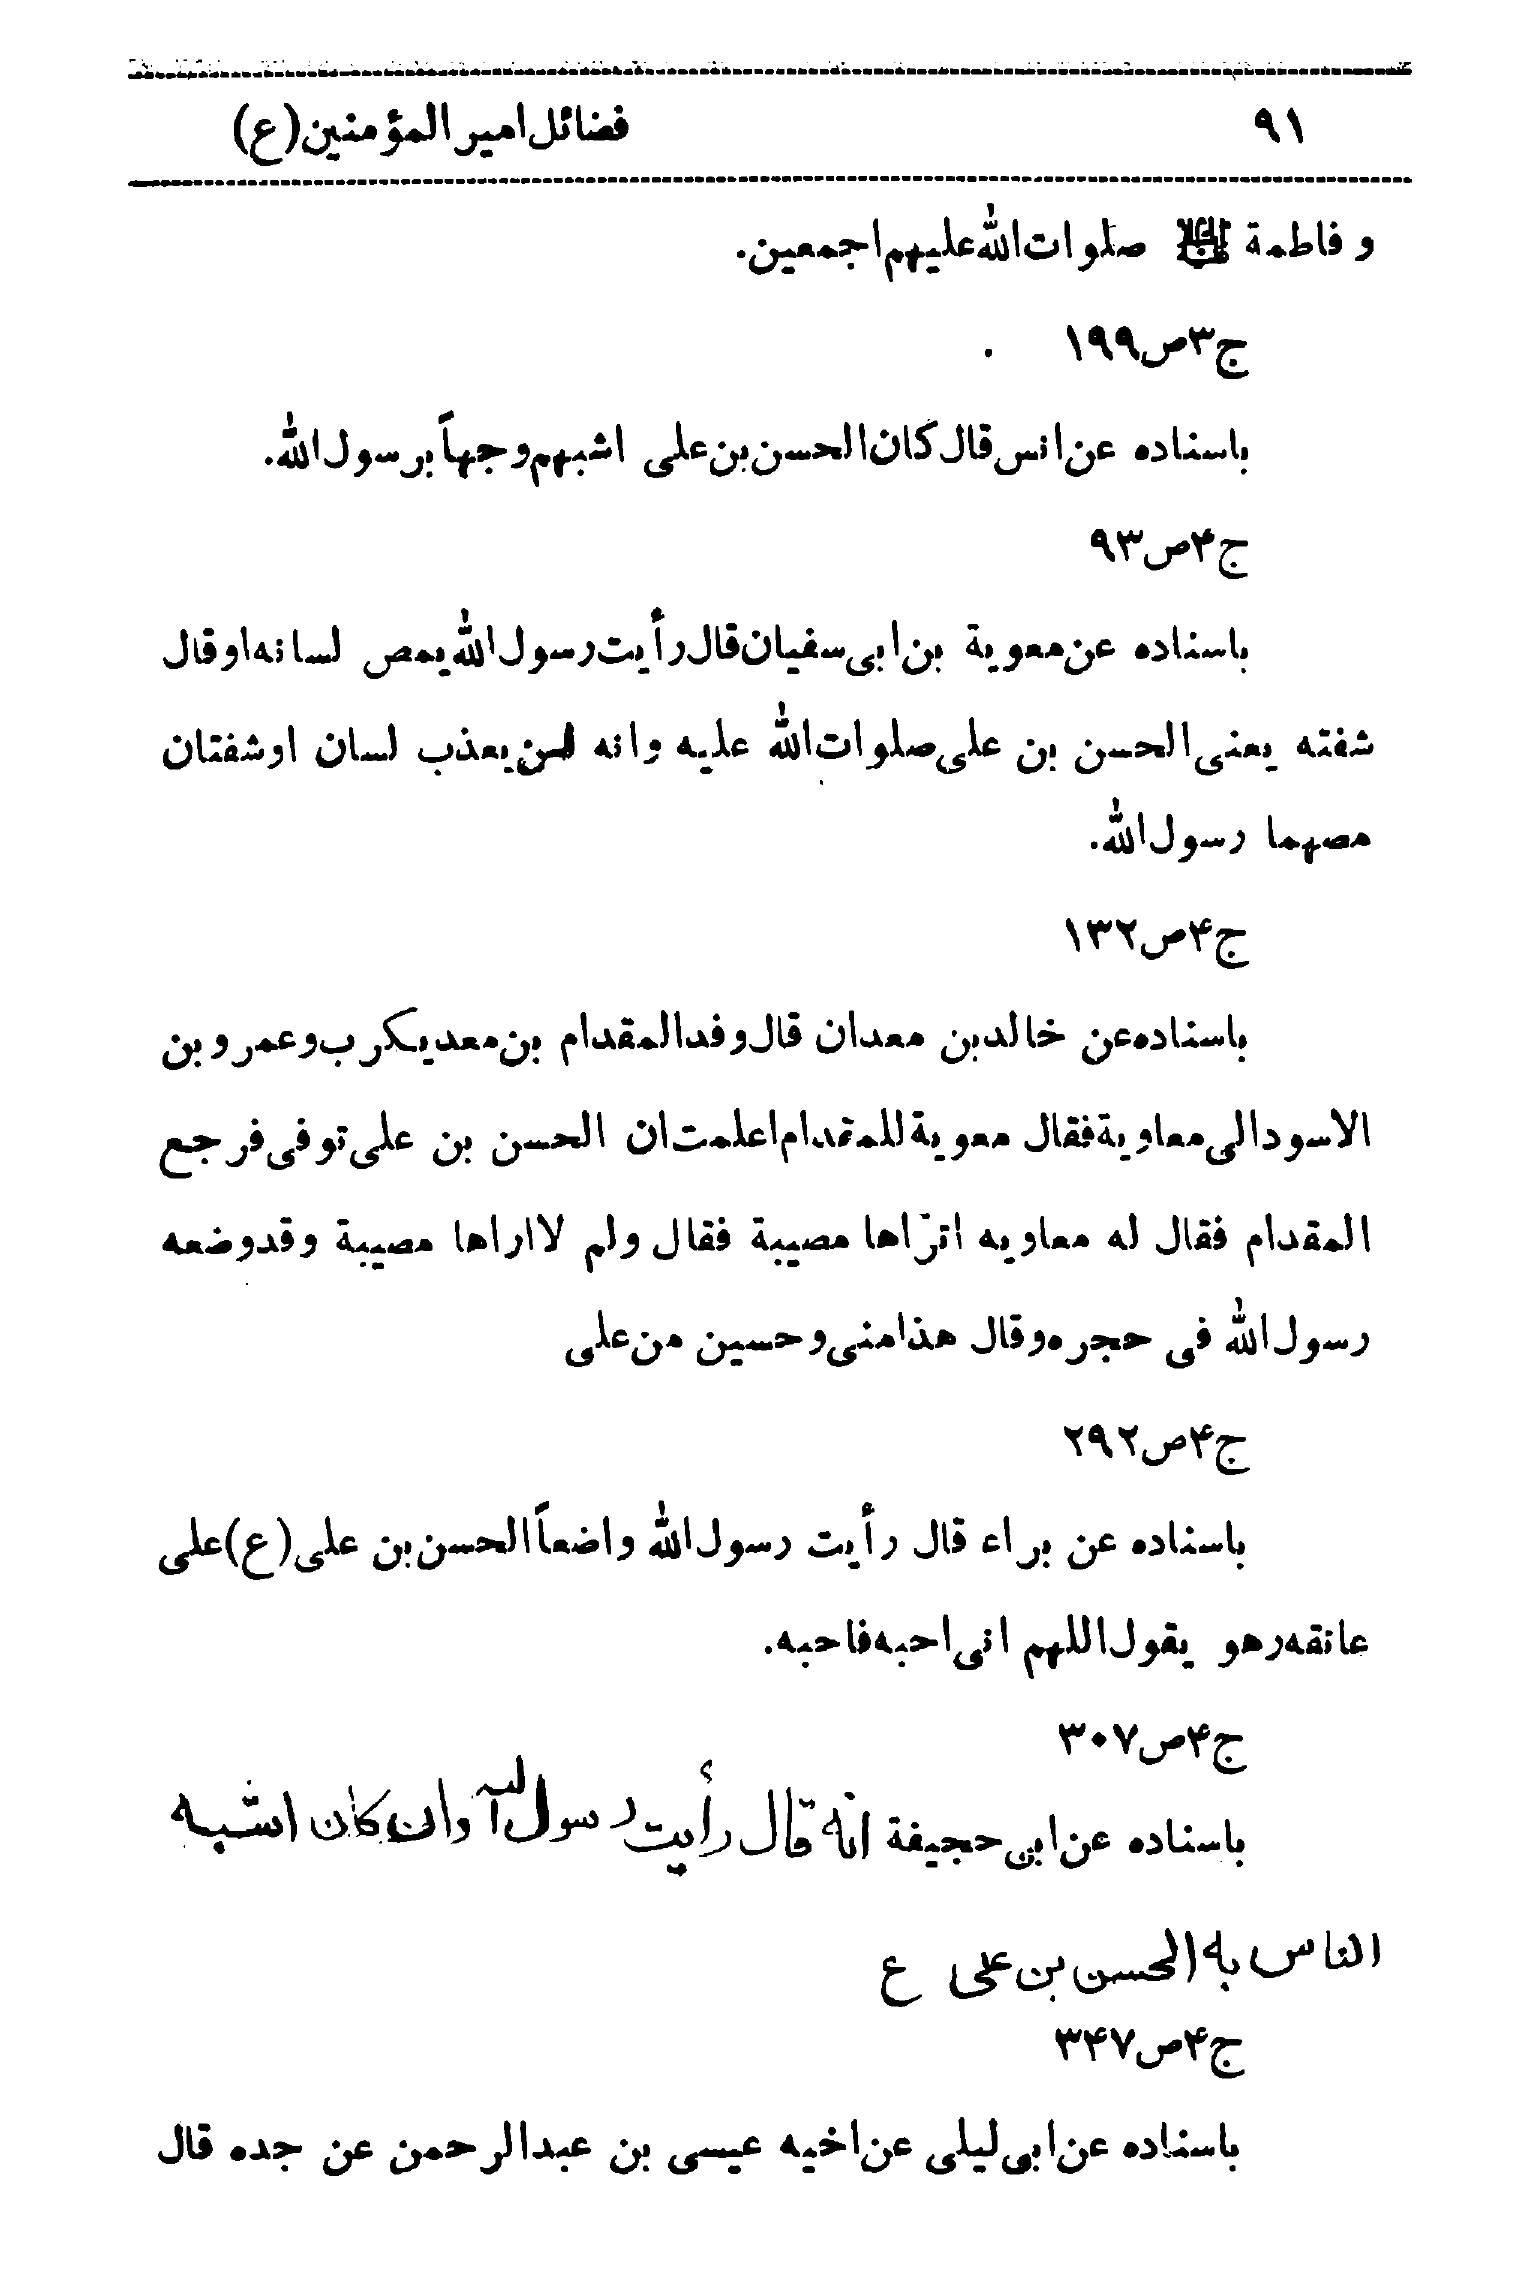 ۹۱ فضائل امیر المؤمنین (ع)
و فاطمة علیها صلوات الله علیهم اجمعین.
ج۳ص۱۹۹
باسناده عن انس قال كان الحسن بن علی اشبههم وجهاً برسول الله.
ج۴ص۹۳
باسناده عن معویة بن ابی سفیان قال رأیت رسول الله یمص لسانه او قال
شفته یعنی الحسن بن علی صلوات الله علیه وانه لن یعذب لسان اوشفتان
مصهما رسول الله.
ج۴ص۱۳۲
باسناده عن خالد بن معدان قال وفد المقدام بن معدیكرب وعمرو بن
الاسود الی معاویة فقال معویة للمقدام اعلمت ان الحسن بن علی توفی فرجع
المقدام فقال له معاویه اترّاها مصیبة فقال ولم لا اراها مصیبة وقد وضعه
رسول الله فی حجره وقال هذا منی وحسین من علی
ج۴ص۲۹۲
باسناده عن براء قال رأیت رسول الله واضعاً الحسن بن علی (ع) علی
عانقه رهو یقول اللهم انی احبه فاحبه.
ج۴ص۳۰۷
باسناده عن ابی حجیفة انّه قال رأیت رسول الله وان كان اشبه
الناس به الحسن بن علی ع
ج۴ص۳۴۷
باسناده عن ابی لیلی عن اخیه عیسی بن عبدالرحمن عن جده قال